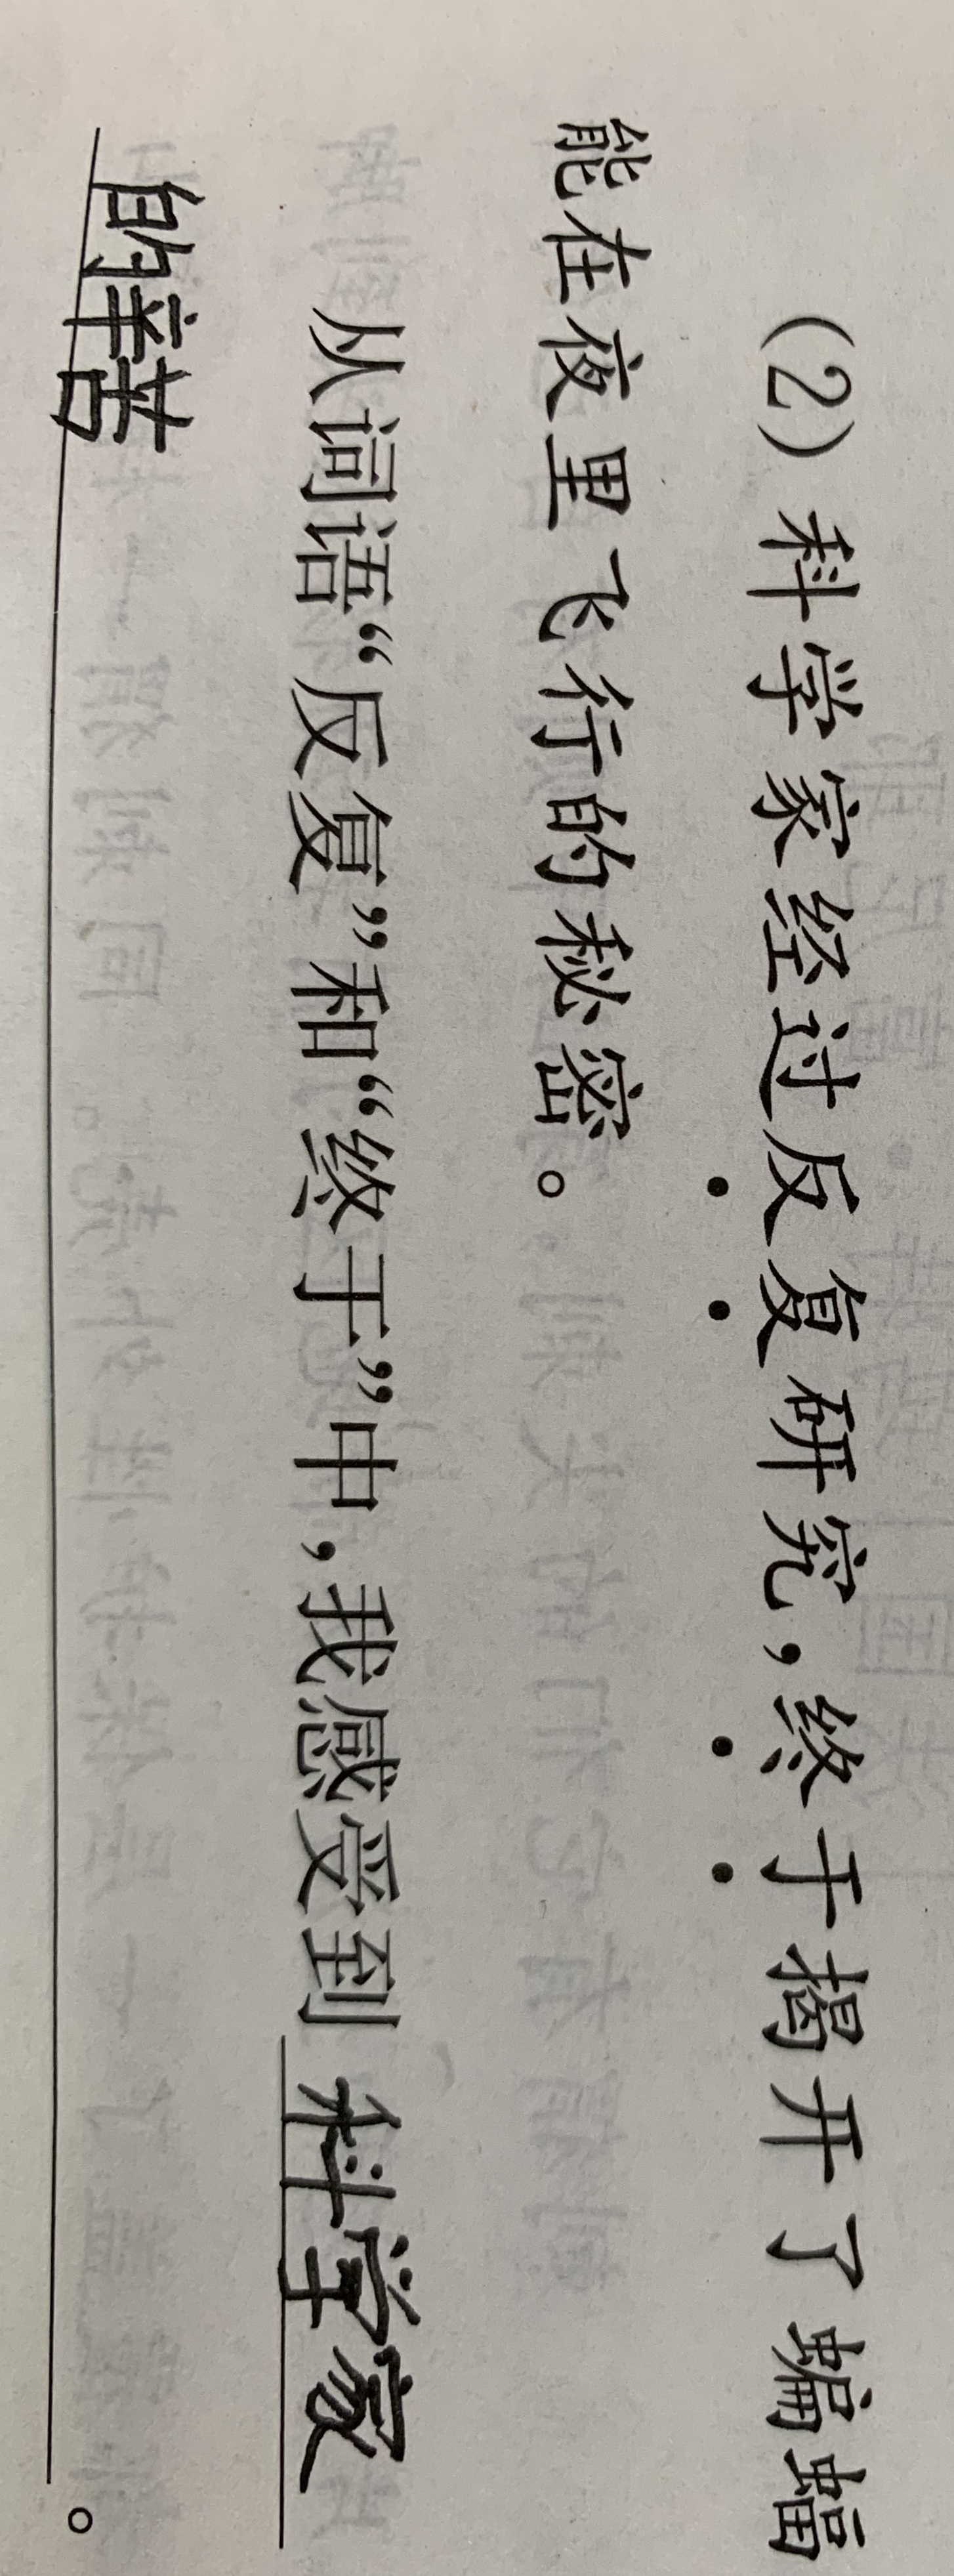 (2)科学家经过反复研究,终于揭开了蝙蝠
能在夜里飞行的秘密。
从词语“反复”和“终于”中,我感受到科学家
的辛苦。